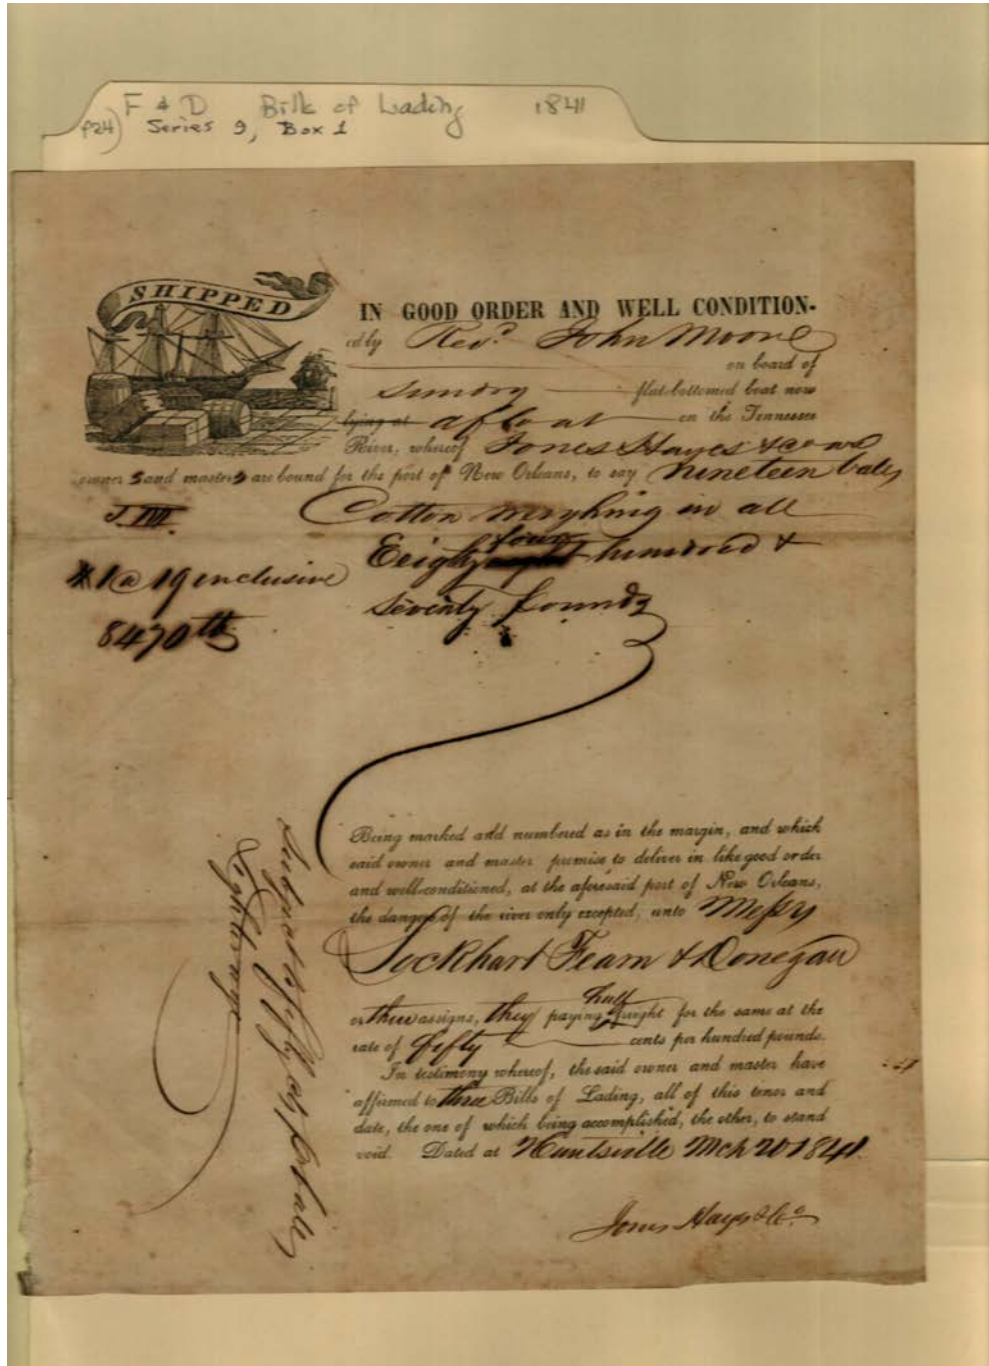 F & D Bills of Lading 1841
f24) Series 9, Box 1
SHIPPED
IN GOOD ORDER AND WELL CONDITION-
ed by Revd. John Moore
on board of
Sundry flat-bottomed boat now
lying at afloat on the Tennessee
River, whereof Jones Hayes & Co are
owner s and master s are bound for the port of New Orleans, to say nineteen bales
Cotton weighing in all
Eeighty four hundred &
Seventy pounds
1 @ 19 inclusive
8470 lb
Being marked and numbered as in the margin, and which
said owner and master promise to deliver in like good order
and well-conditioned, at the aforesaid port of New Orleans,
the danger of the river only excepted, unto Messrs
Lockhart Fearn & Donegan
or their assigns, they paying half freight for the same at the
rate of fifty cents per hundred pounds.
In testimony whereof, the said owner and master have
affirmed to three Bills of Lading, all of this tenor and
date, the one of which being accomplished, the other, to stand
void. Dated at Huntsville Mch 20 1841.
Jones Hayes & Co.
Subject to fifty cts pr bale
Lighterage